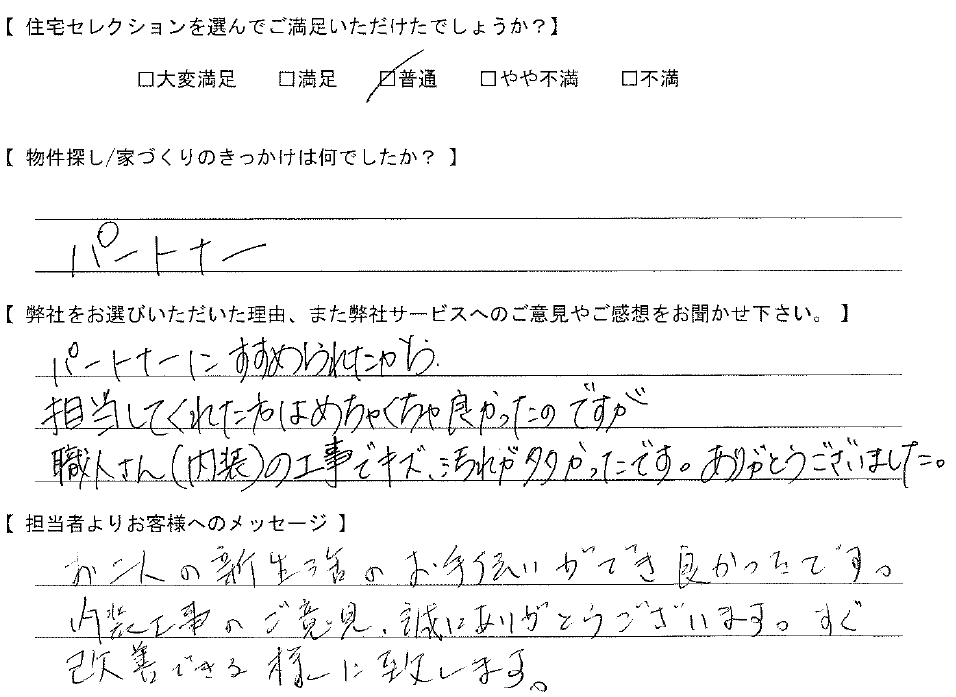 【 住宅セレクションを選んでご満足いただけたでしょうか?】
□大変満足 □満足 □普通 □やや不満 □不満
【 物件探し/家づくりのきっかけは何でしたか? 】
パートナー
【 弊社をお選びいただいた理由、また弊社サービスへのご意見やご感想をお聞かせ下さい。 】
パートナーにすすめられたから.
担当してくれた方はめちゃくちゃ良かったのですが
職人さん(内装)の工事でキズ、汚れが多かったです。ありがとうございました。
【 担当者よりお客様へのメッセージ 】
お二人の新生活のお手伝いができ良かったです。
内装工事のご意見、誠にありがとうございます。すぐ
改善できる様に致します。